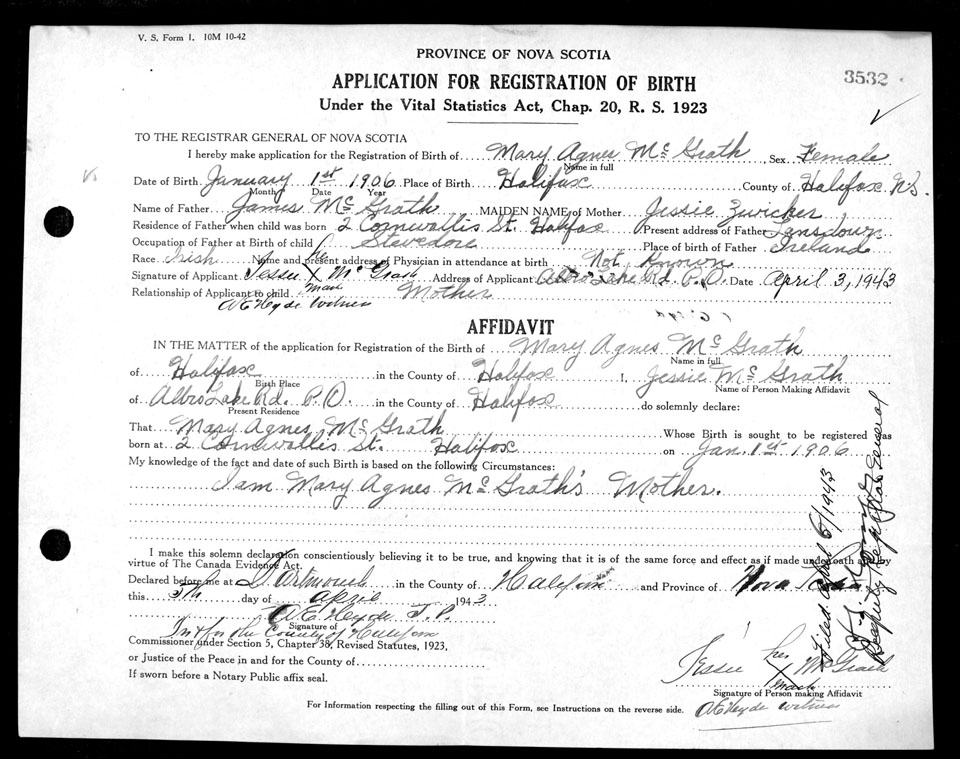 V. S. Form 1. 10M 10-42
PROVINCE OF NOVA SCOTIA
3532
APPLICATION FOR REGISTRATION OF BIRTH
Under the Vital Statistics Act, Chap. 20, R. S. 1923
TO THE REGISTRAR GENERAL OF NOVA SCOTIA
I hereby make application for the Registration of Birth of Mary Agnes Mc Grath Sex Female
Name in full
Date of Birth January 1st 1906 Place of Birth Halifax County of Halifax N.S.
Month Date Year
Name of Father James Mc Grath MAIDEN NAME of Mother Jessie Zwicker
Residence of Father when child was born 2 Cornwallis St. Halifax Present address of Father Lansdown
Occupation of Father at Birth of child Stevedore Place of Birth of Father Ireland
Race Irish Name and present address of Physician in attendance at birth Not Known
Signature of Applicant Jessie her X mark Mc Grath Address of Applicant Albro Lake Rd. P.O. Date April 3, 1943
Relationship of Applicant to child Mother
A E Hyde witness
AFFIDAVIT
IN THE MATTER of the application for Registration of the Birth of Mary Agnes Mc Grath
Name in full
of Halifax in the County of Halifax I, Jessie Mc Grath
Birth Place Name of Person Making Affidavit
of Albro Lake Rd. P.O. in the County of Halifax do solemnly declare:
Present Residence
That Mary Agnes Mc Grath Whose Birth is sought to be registered was
born at 2 Cornwallis St. Halifax on Jan. 1st 1906
My knowledge of the fact and date of such Birth is based on the following Circumstances:
I am Mary Agnes Mc Grath's Mother.
I make this solemn declaration conscientiously believing it to be true, and knowing that it is of the same force and effect as if made under oath and by
virtue of The Canada Evidence Act.
Declared before me at Dartmouth in the County of Halifax and Province of Nova Scotia
this 5th day of April 1943
A.E. Hyde J.P.
Signature of
In & for the County of Halifax
Commissioner under Section 5, Chapter 38, Revised Statutes, 1923,
or Justice of the Peace in and for the County of
If sworn before a Notary Public affix seal.
Jessie her X mark McGrath
Signature of Person making Affidavit
A E Hyde witness
For Information respecting the filling out of this Form, see Instructions on the reverse side.
Filed April 6/1943
Deputy Registrar General